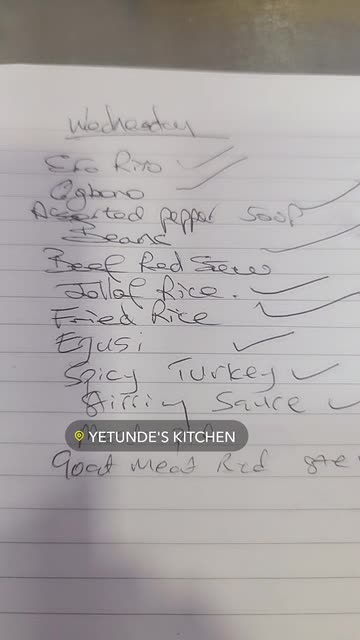 Wednesday
Efo Riro
Ogbono
Assorted pepper soup
Beans
Beef Red Stew
Jollof Rice.
Fried Rice
Egusi
Spicy Turkey
Sauce
YETUNDE'S KITCHEN
Goat Meat Red